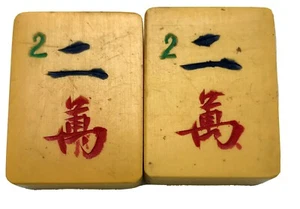 2 二
萬
2 二
萬